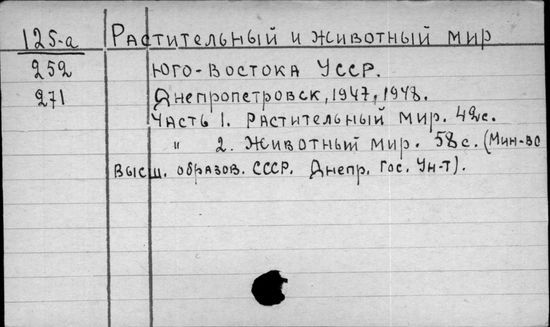 125-а Растительный и животный мир
252 юго-востока УССР.
271 Днепропетровск, 1947, 1948.
Часть 1. Растительный мир. 42с.
" 2. Животный мир. 58с. (Мин-во
высш. образов. СССР. Днепр. Гос. Ун-т).